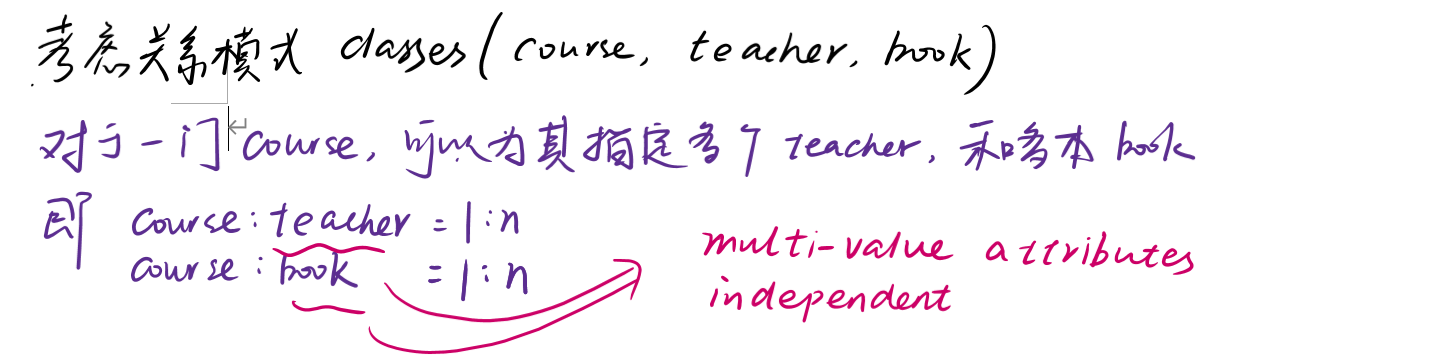 考虑关系模式 classes(course, teacher, book)
对于一门course, 可以为其指定多个 teacher, 和多本 book
即 course:teacher = 1:n
course:book = 1:n
multi-value attributes
independent